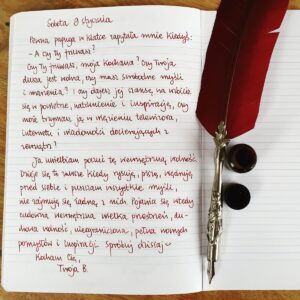 Sobota 9 stycznia
Pewna papuga w klatce zapytała mnie kiedyś:
- A czy Ty fruwasz?
Czy Ty fruwasz, moja Kochana? Czy Twoja
dusza jest wolna, czy masz swobodne myśli
i marzenia? I czy dajesz jej szansę na wzbicie
się w powietrze, natchnienie i inspirację, czy
może trzymasz ją w więzieniu telewizora,
internetu i wiadomości docierających z
zewnątrz?
Ja uwielbiam poczuć tę wewnętrzną wolność.
Dzieje się to zawsze kiedy rysuję, piszę, wędruję
przed siebie i puszczam wszystkie myśli,
nie zajmuję się żadną z nich. Pojawia się wtedy
cudowna wewnętrzna wielka przestrzeń, du-
chowa wolność, nieograniczona, pełna nowych
pomysłów i inspiracji. Spróbuj dzisiaj
Kocham Cię,
Twoja B.